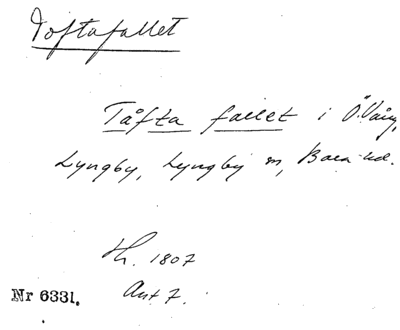 Toftafallet
Tåfta fallet i Ö. Vång,
Lyngby, Lyngby sn, Bara hd.
Th. 1807
Ant 7.
Nr 6331.